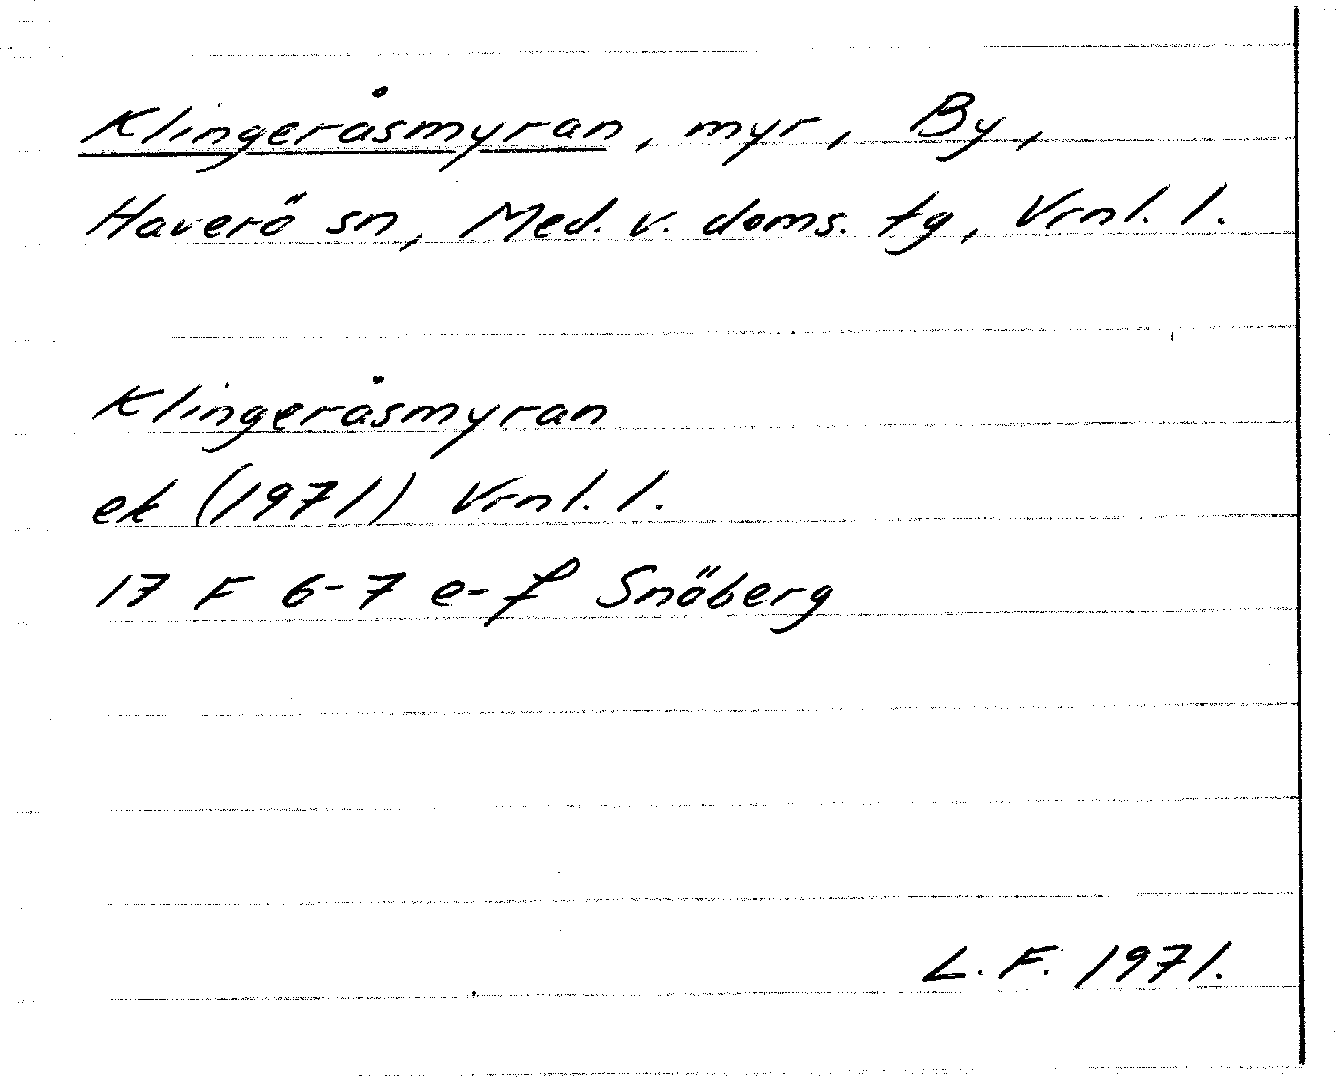 Klingeråsmyran, myr, By,
Haverö sn, Med. v. doms. tg, Vrnl. l.
Klingeråsmyran
ek (1971) Vrnl. l.
17 F 6-7 e-f Snöberg
L. F. 1971.